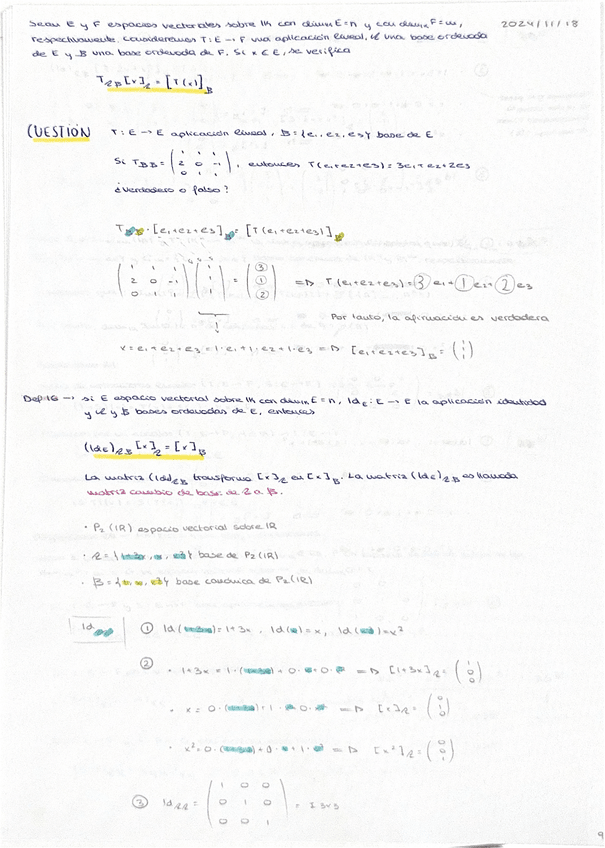 Sean E y F espacios vectoriales sobre IK con dim_IK E=n y con dim_IK F=m, 2024/11/18
respectivamente. Consideremos T: E → F una aplicación lineal, U una base ordenada
de E y B una base ordenada de F. Si x ∈ E, se verifica
T_UB [x]_U = [T(x)]_B
CUESTIÓN T: E → E aplicación lineal, B = {e1, e2, e3} base de E
Si T_BB = (1 1 1
2 0 -1
0 1 1), entonces T(e1+e2+e3) = 3e1+e2+2e3
¿verdadero o falso?
T_BB · [e1+e2+e3]_B = [T(e1+e2+e3)]_B
(1 1 1
2 0 -1
0 1 1) (1
1
1) = (3
1
2) ⇒ T(e1+e2+e3) = 3 e1 + 1 e2 + 2 e3
Por tanto, la afirmación es verdadera
x = e1+e2+e3 = 1·e1 + 1·e2 + 1·e3 ⇒ [e1+e2+e3]_B = (1
1
1)
Def 16 → si E espacio vectorial sobre IK con dim_IK E=n, Id_E: E → E la aplicación identidad
y U y B bases ordenadas de E, entonces
(Id_E)_UB [x]_U = [x]_B
La matriz (Id_E)_UB transforma [x]_U en [x]_B. La matriz (Id_E)_UB es llamada
matriz cambio de base de U a B.
· P2(IR) espacio vectorial sobre IR
· U = {1+3x, x, x²} base de P2(IR)
· B = {1, x, x²} base canónica de P2(IR)
Id_UU
① Id(1+3x) = 1+3x, Id(x) = x, Id(x²) = x²
② · 1+3x = 1·(1+3x) + 0·x + 0·x² ⇒ [1+3x]_U = (1
0
0)
· x = 0·(1+3x) + 1·x 0·x² ⇒ [x]_U = (0
1
0)
· x² = 0·(1+3x) + 0·x + 1·x² ⇒ [x²]_U = (0
0
1)
③ Id_UU = (1 0 0
0 1 0
0 0 1) = I 3x3
9